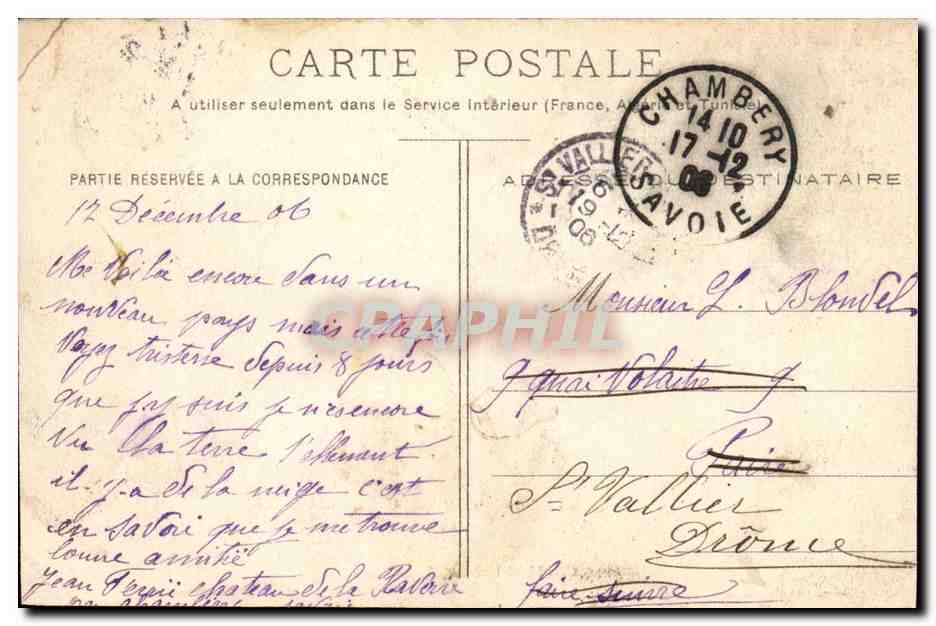 CARTE POSTALE
A utiliser seulement dans le Service Intérieur (France, Algérie et Tunisie)
CHAMBERY
14 10
17 -12
06
SAVOIE
St VALLIER
6
19 -12
06
PARTIE RESERVÉE A LA CORRESPONDANCE
12 Décembre 06
Me Voilà encore dans un
nouveau pays mais
tristesse depuis 8 jours
que j-y suis je encore
Vu la terre
il-y-a de la neige c'est
en Savoi que je me trouve
bonne amitié
Jean chateau de la
ADRESSE DU DESTINATAIRE
Monsieur L. Blondel
9 quai Volaitre 9
Paris
St Vallier
Drôme
faire suivre
CPAPHIL